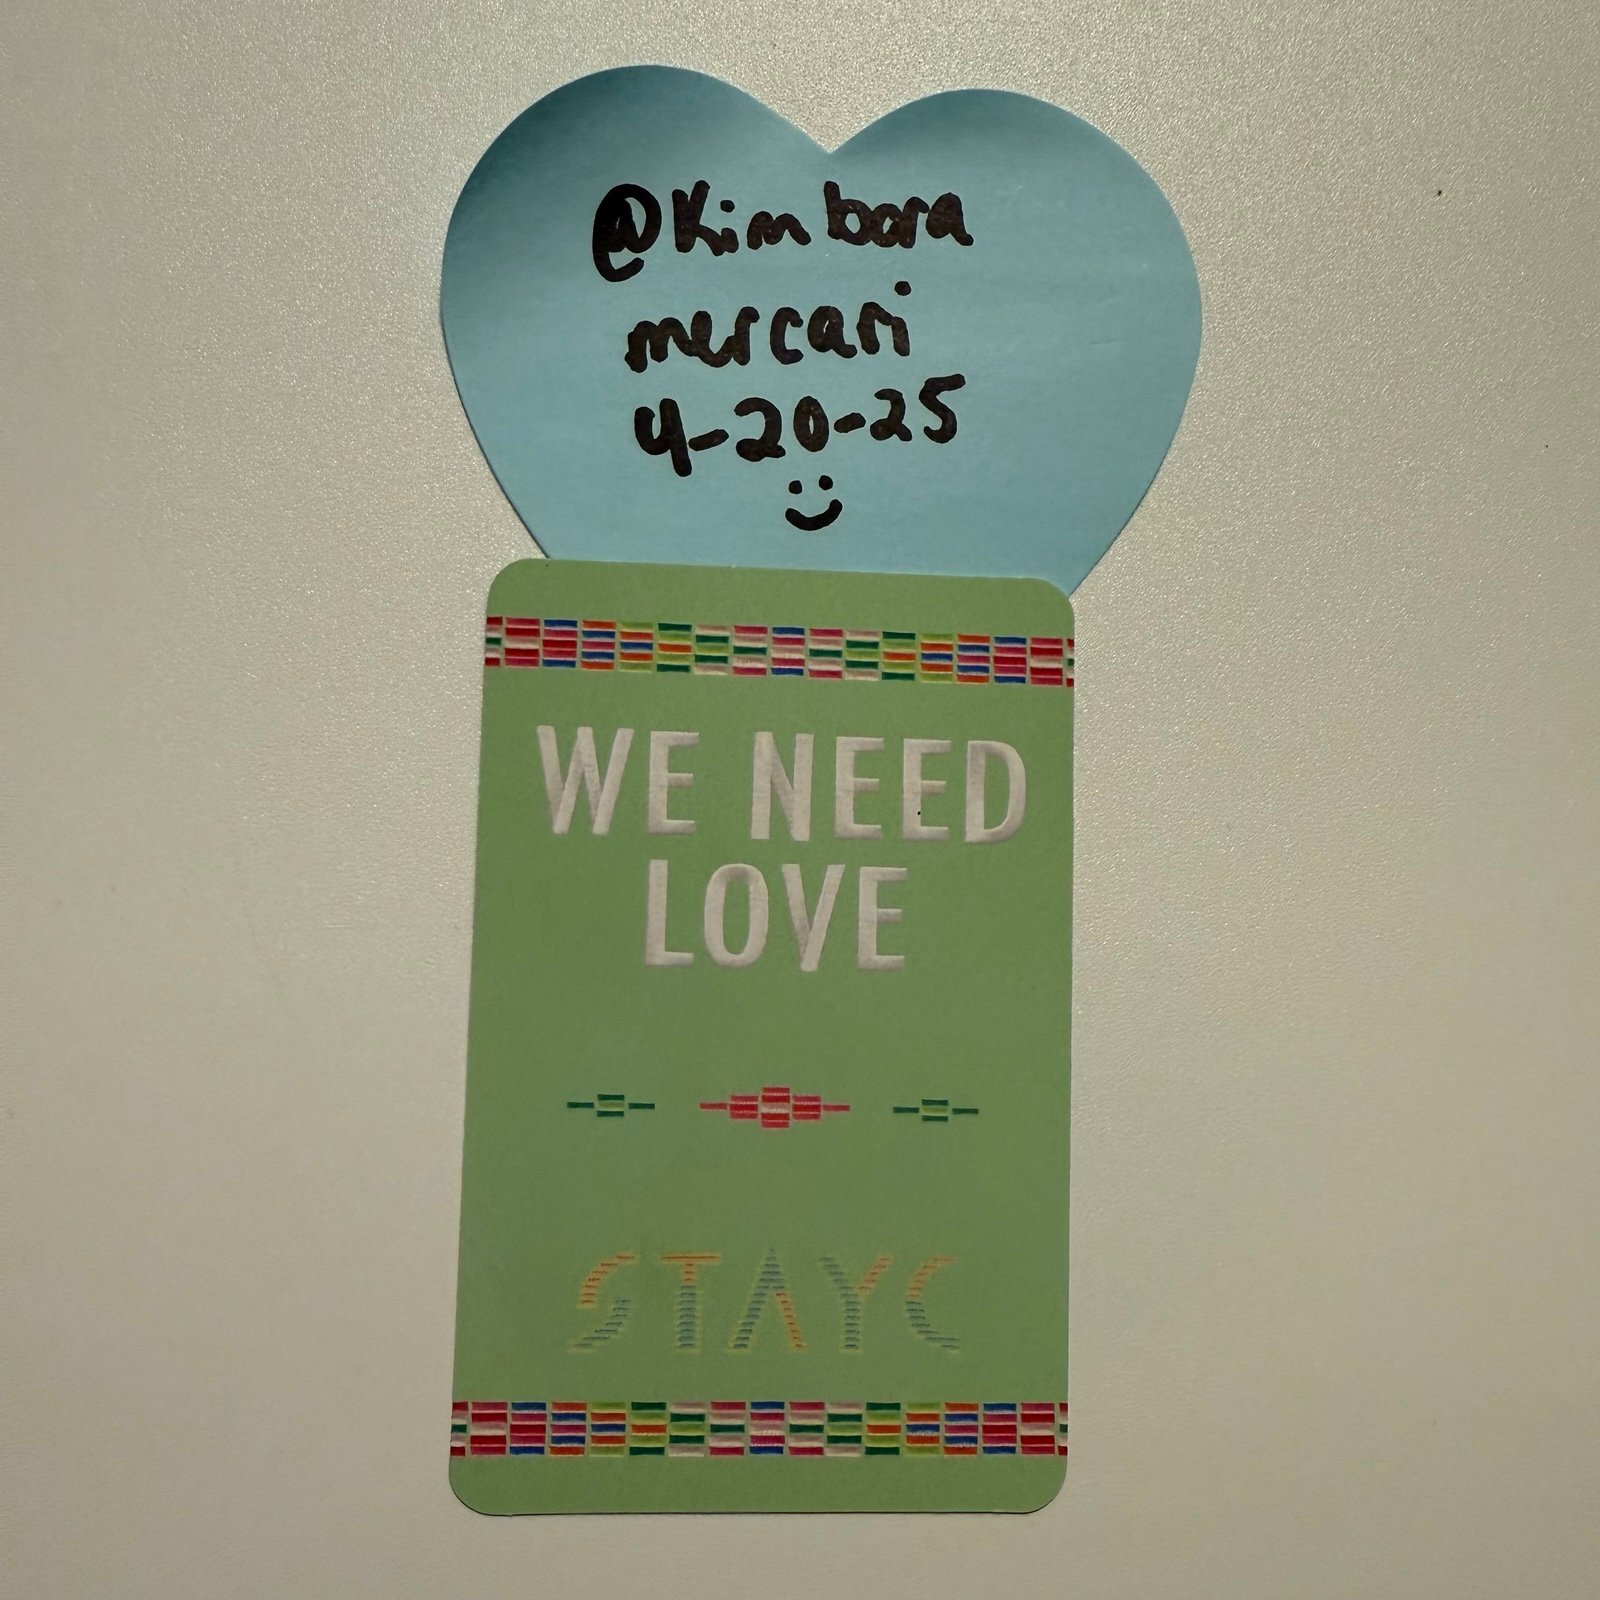 @Kimbora
mercari
4-20-25
WE NEED
LOVE
STAYC